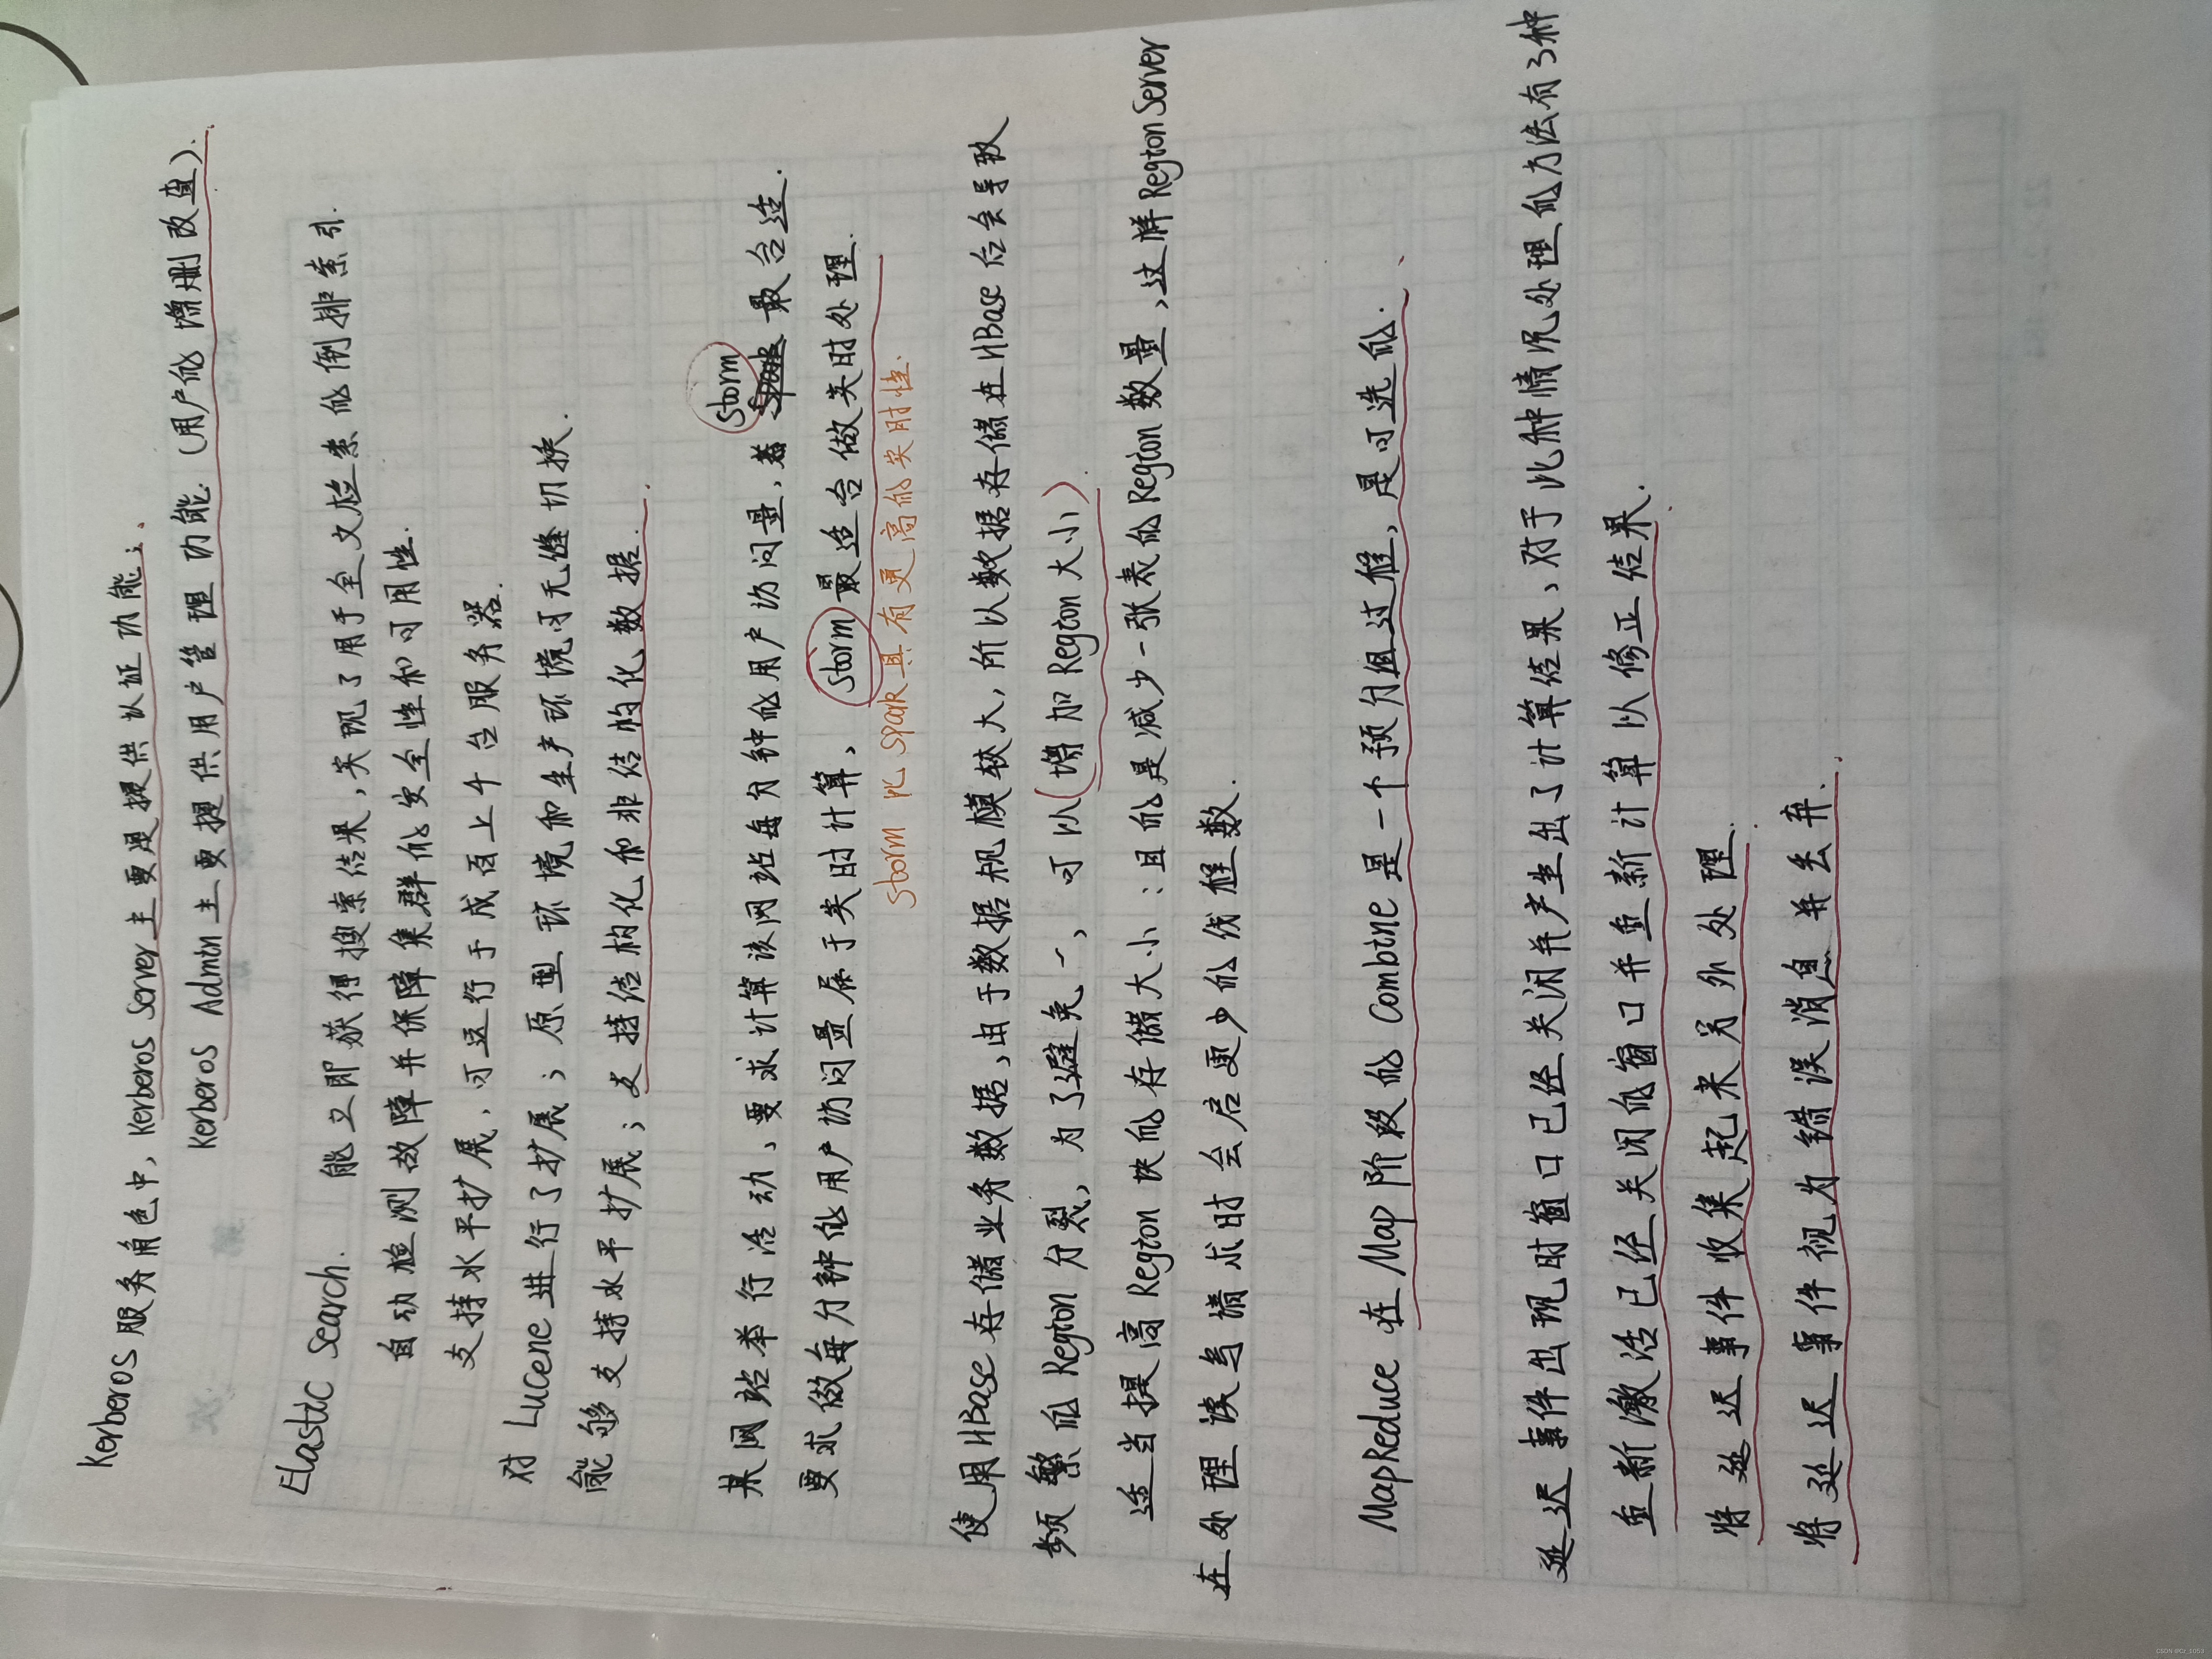 Kerberos服务角色中,Kerberos Server主要是提供认证功能;
Kerberos Admin主要提供用户管理功能.(用户的增删改查).
Elastic Search. 能立即获得搜索结果,实现了用于全文检索的倒排索引.
自动检测故障并保障集群的安全性和可用性.
支持水平扩展,可运行于成百上千台服务器.
对Lucene进行了扩展;原型环境和生产环境可无缝切换.
能够支持水平扩展;支持结构化和非结构化数据.
某网站举行活动,要求计算该网站每分钟的用户访问量, Storm 最合适.
要求做每分钟的用户访问量属于实时计算, Storm 最适合做实时处理.
Storm 比Spark具有更高的实时性.
使用HBase存储业务数据,由于数据规模较大,所以数据存储在HBase后会导致
频繁的Region分裂,为了避免一,可以(增加Region大小)
适当提高Region块的存储大小:目的是减少一张表的Region数量,这样RegionServer
在处理读写请求时会启更少的线程数.
MapReduce在Map阶段的Combine是一个预分组过程,是可选的.
延迟事件出现时窗口已经关闭并产生出了计算结果,对于此种情况处理的方法有3种
重新激活已经关闭的窗口并重新计算以修正结果.
将延迟事件收集起来另外处理.
将延迟事件视为错误消息并丢弃.